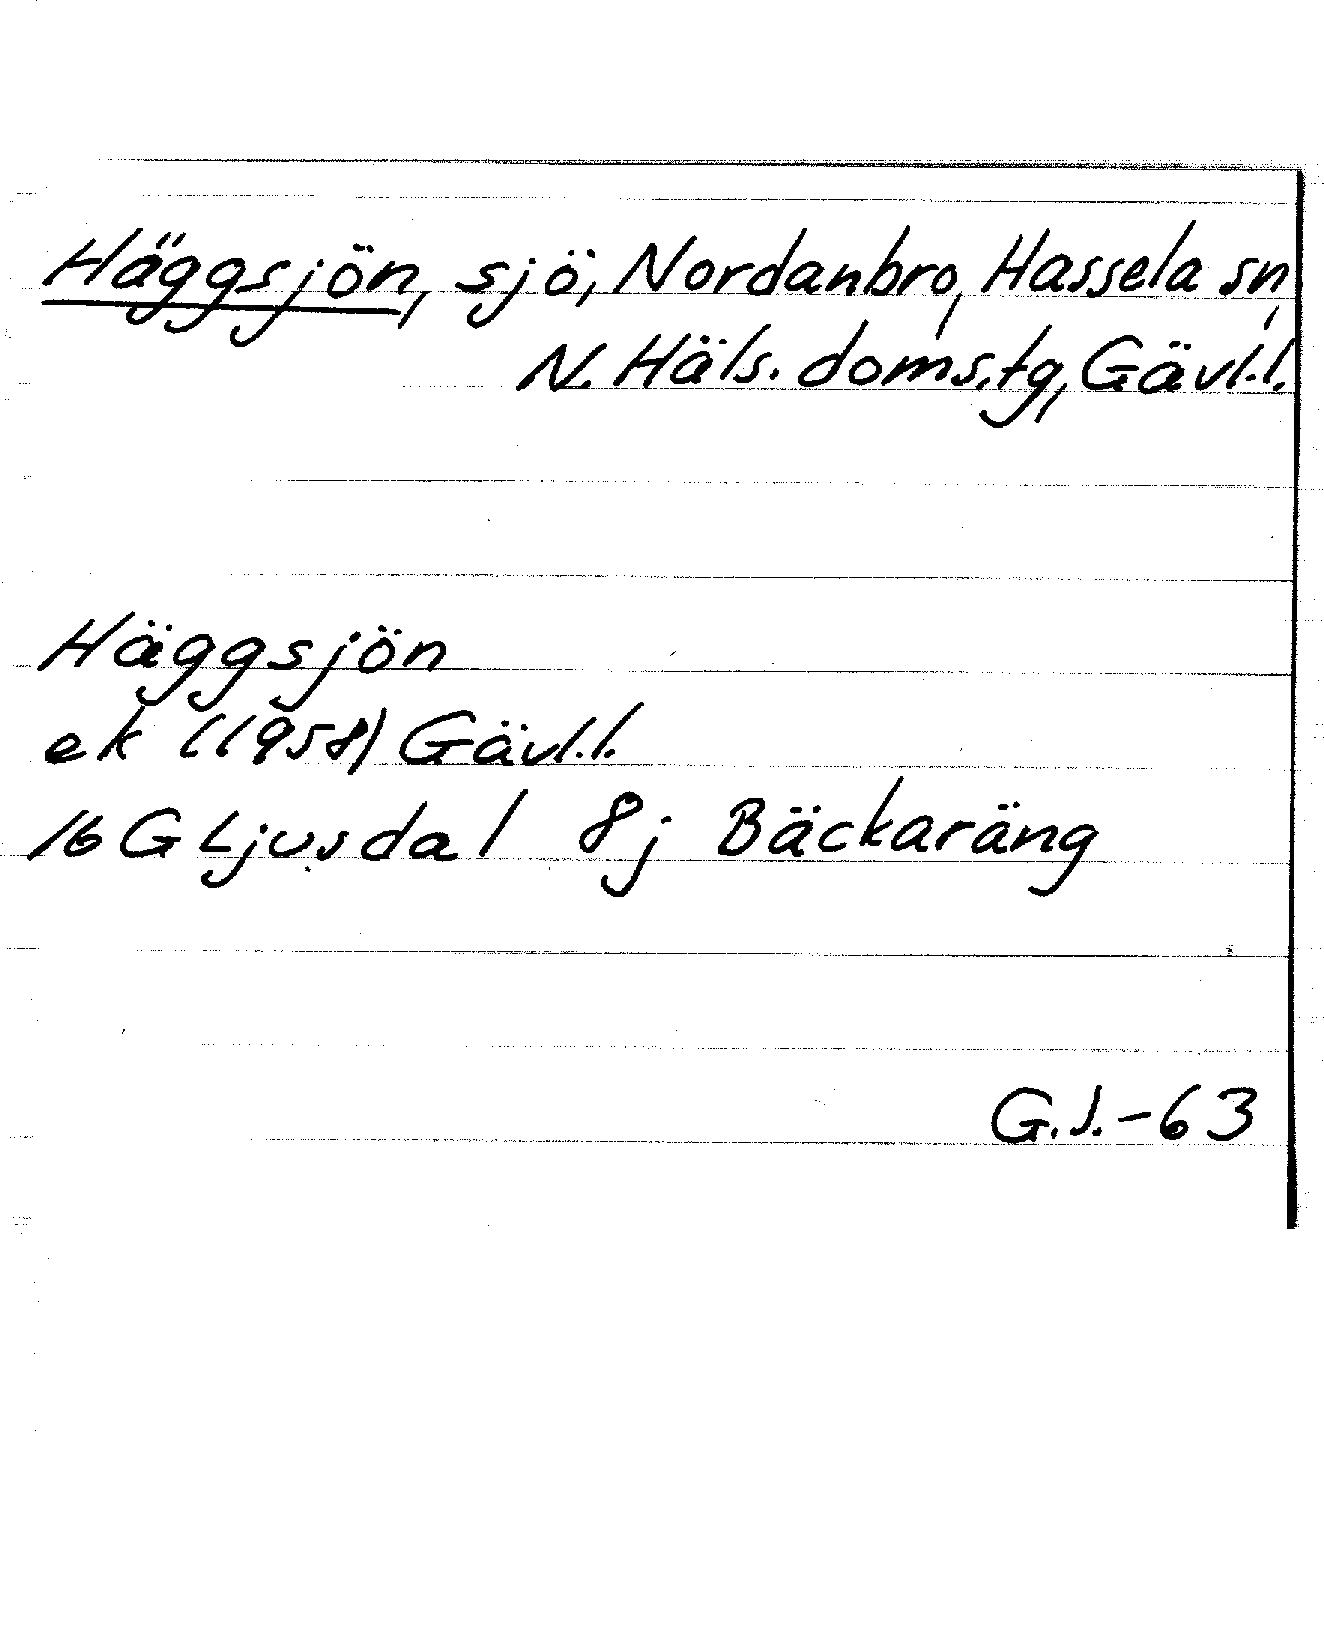 Häggsjön, sjö, Nordanbro, Hassela sn,
N. Häls. doms.tg, Gävl.l.
Häggsjön
ek (1958) Gävl.l.
16 G Ljusdal 8j Bäckaräng
G.J.-63